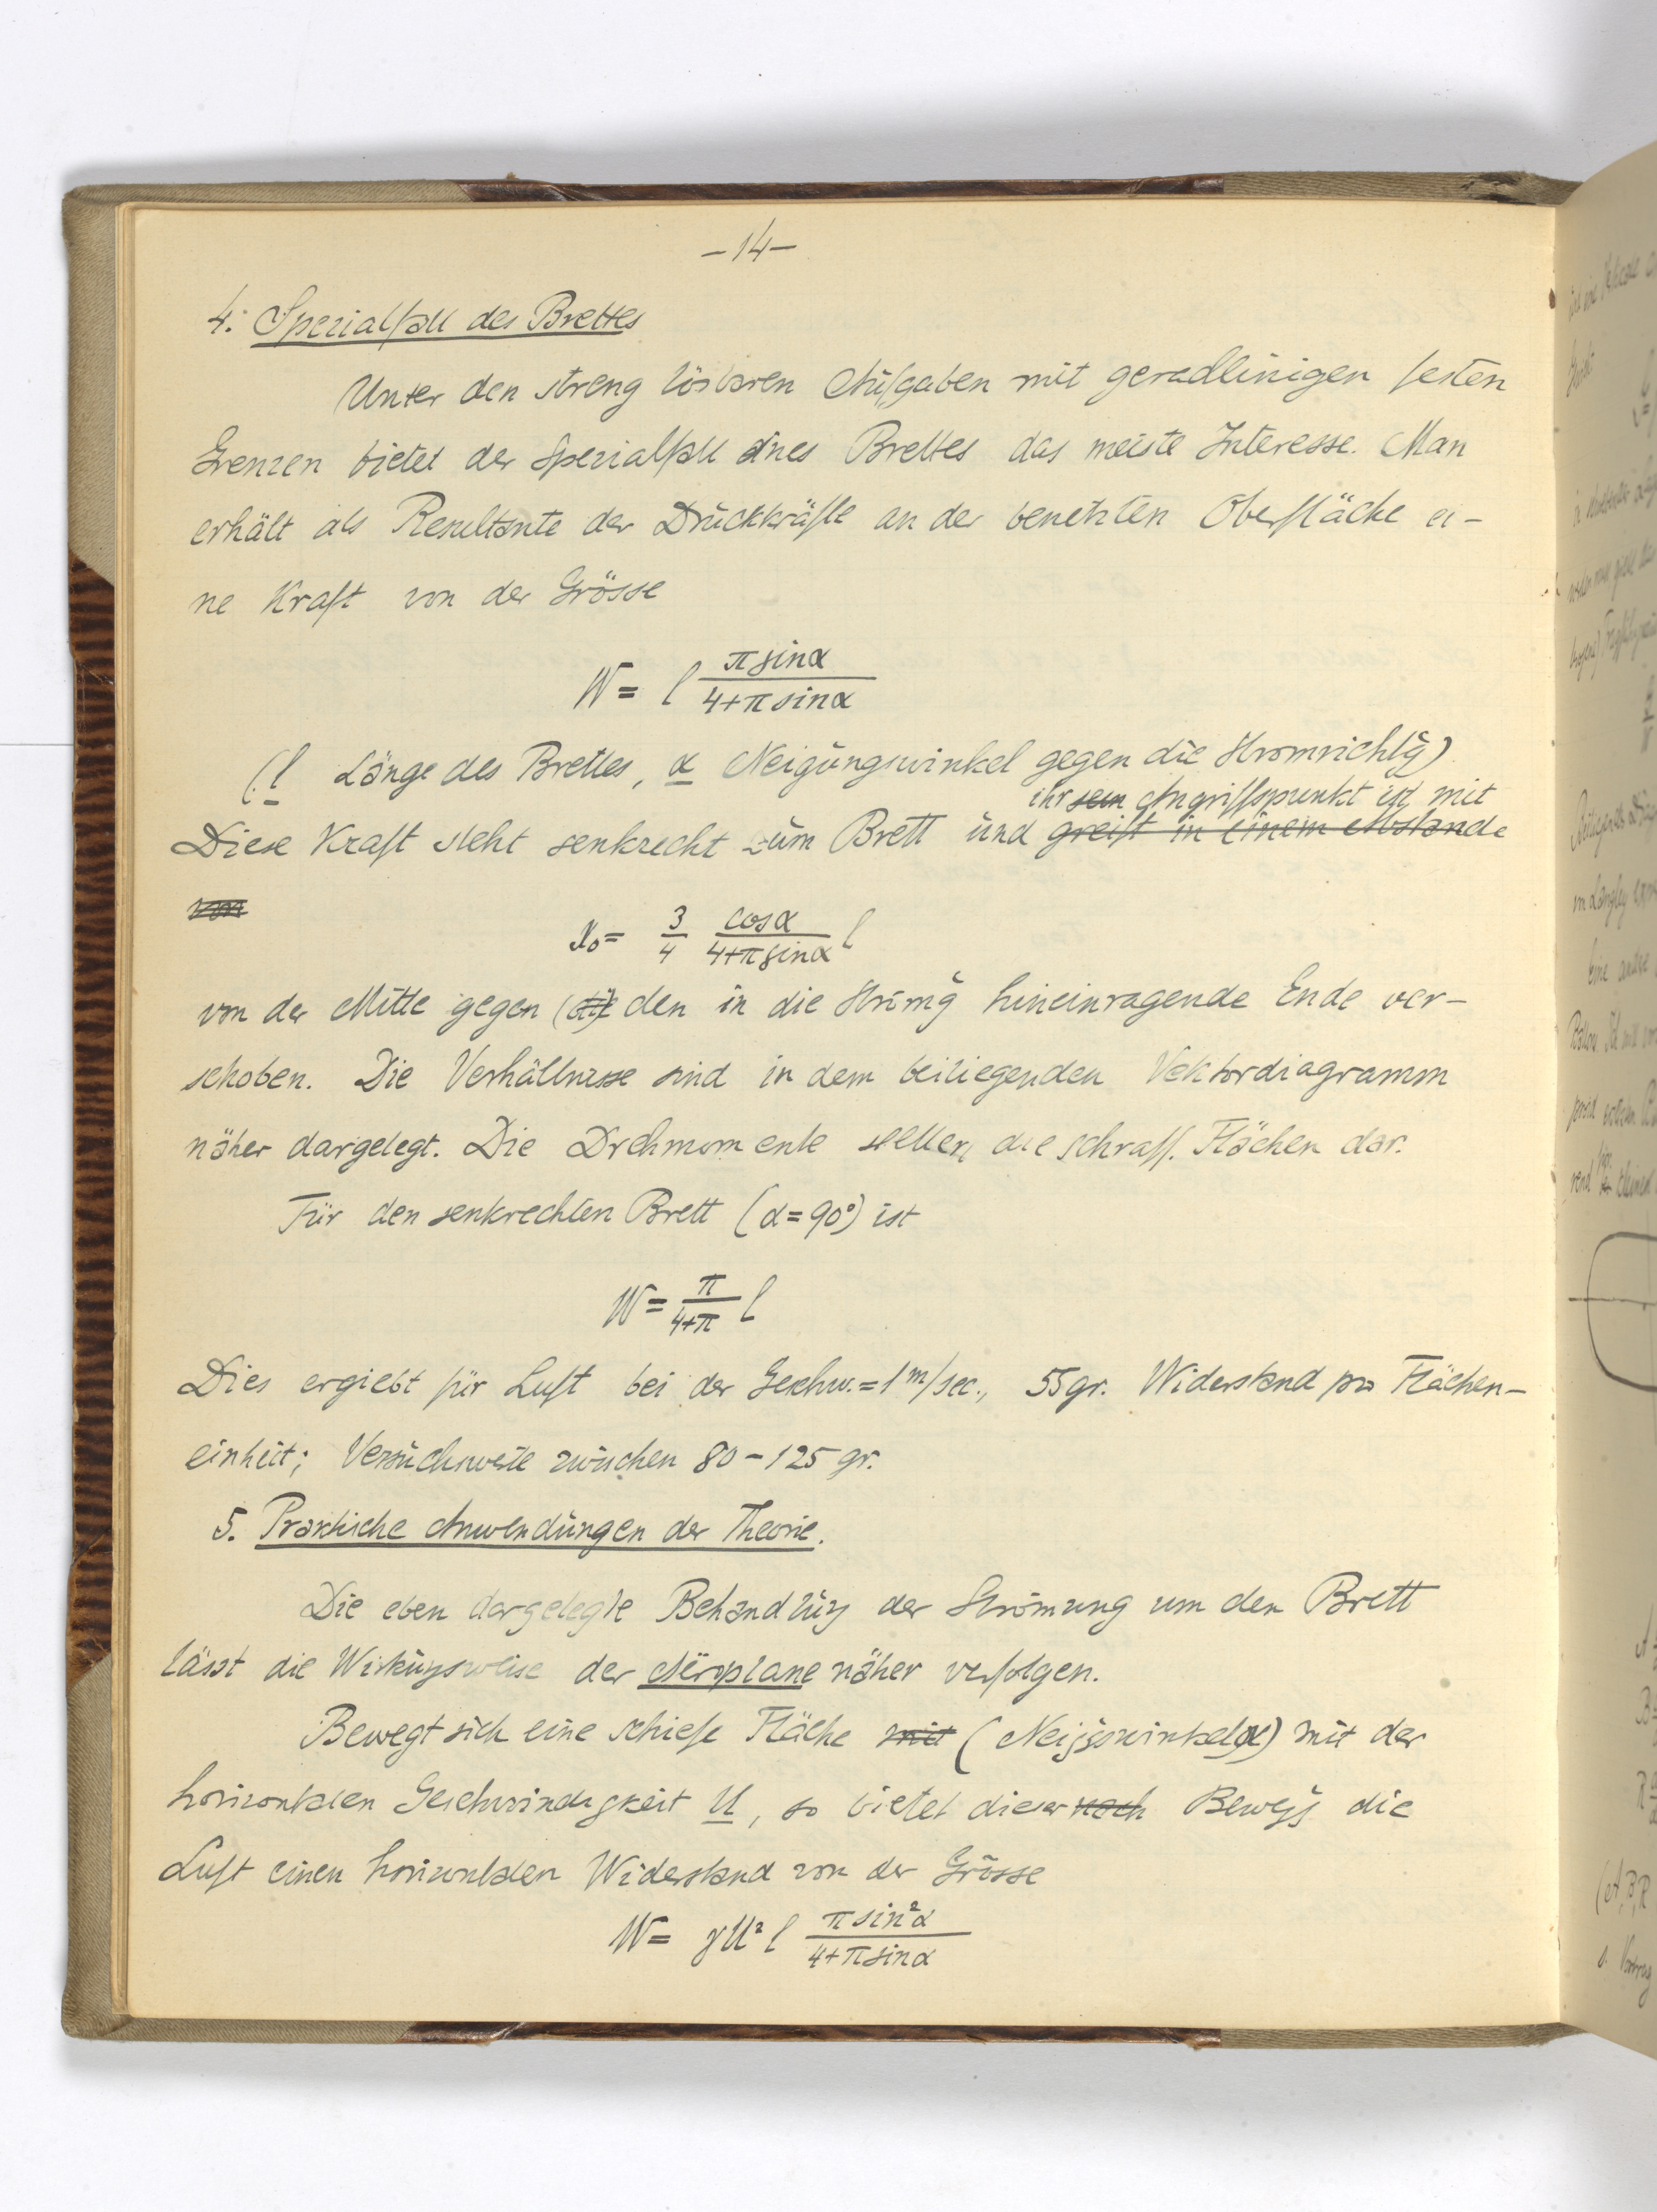 –14–
4. Spezialfall des Brettes
Unter den streng lösbaren Aufgaben mit geradlinigen festen
Grenzen bietet der Spezialfall eines Brettes das meiste Interesse. Man
erhält als Resultante der Druckkräfte an der benetzten Oberfläche ei-
ne Kraft von der Grösse
W = l π sinα / 4+π sinα
(l Länge des Brettes, α Neigungswinkel gegen die Stromrichtg)
ihr sein Angriffspunkt ist mit
Diese Kraft steht senkrecht zum Brett und greift in einem Abstande
von
x₀ = 3/4 cosα / 4+π sinα l
von der Mitte gegen (die) den in die Strömg hineinragende Ende ver-
schoben. Die Verhältnisse sind in dem beiliegenden Vektordiagramm
näher dargelegt. Die Drehmomente stellen die schraff. Flächen dar.
Für den senkrechten Brett (α=90°) ist
W = π / 4+π l
Dies ergiebt für Luft bei der Geschw.=1 m/sec., 55gr. Widerstand pro Flächen-
einheit; Versuchswerte zwischen 80–125 gr.
5. Praktische Anwendungen der Theorie.
Die eben dargelegte Behandlung der Strömung um den Brett
lässt die Wirkungsweise der Aëroplane näher verfolgen.
Bewegt sich eine schiefe Fläche mit (Neiggswinkel α) mit der
horizontalen Geschwindigkeit U, so bietet dieser noch Bewegg die
Luft einen horizontalen Widerstand von der Grösse
W = γU² l π sin²α / 4+π sinα